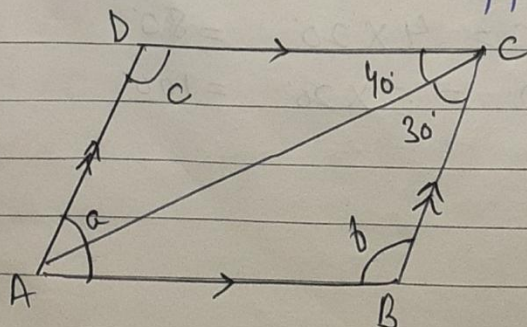 D
C
c
40°
30°
a
b
A
B